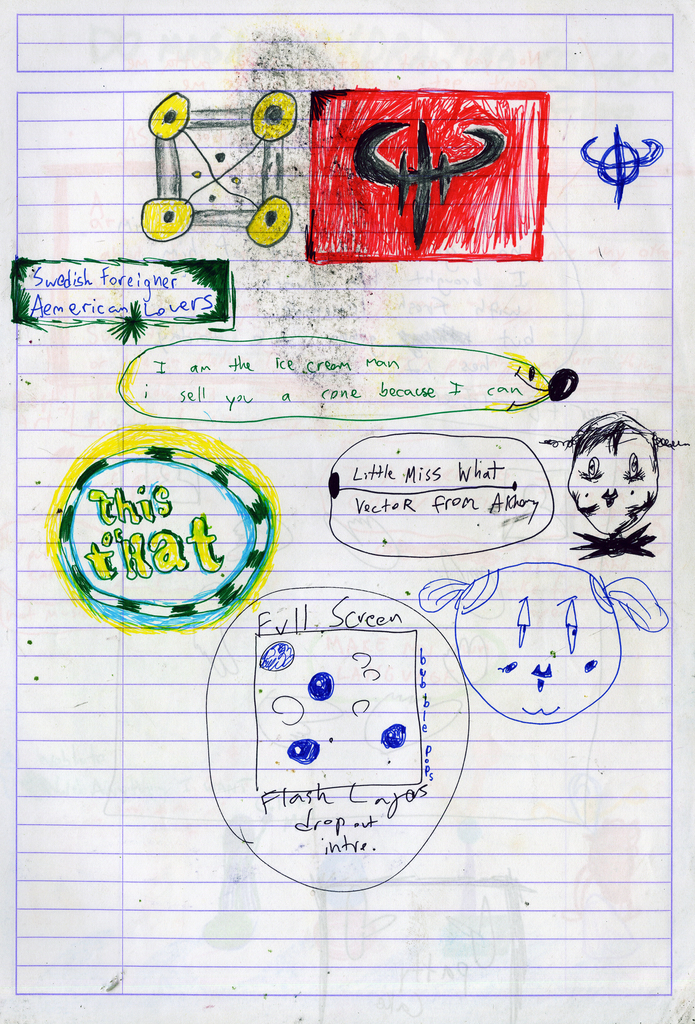 Swedish Foreigner
Aemerican Lovers
I am the ice cream man
i sell you a cone because I can
This
or
that
Little Miss What
Vector from
Full Screen
bubble pops
Flash Layers
drop out